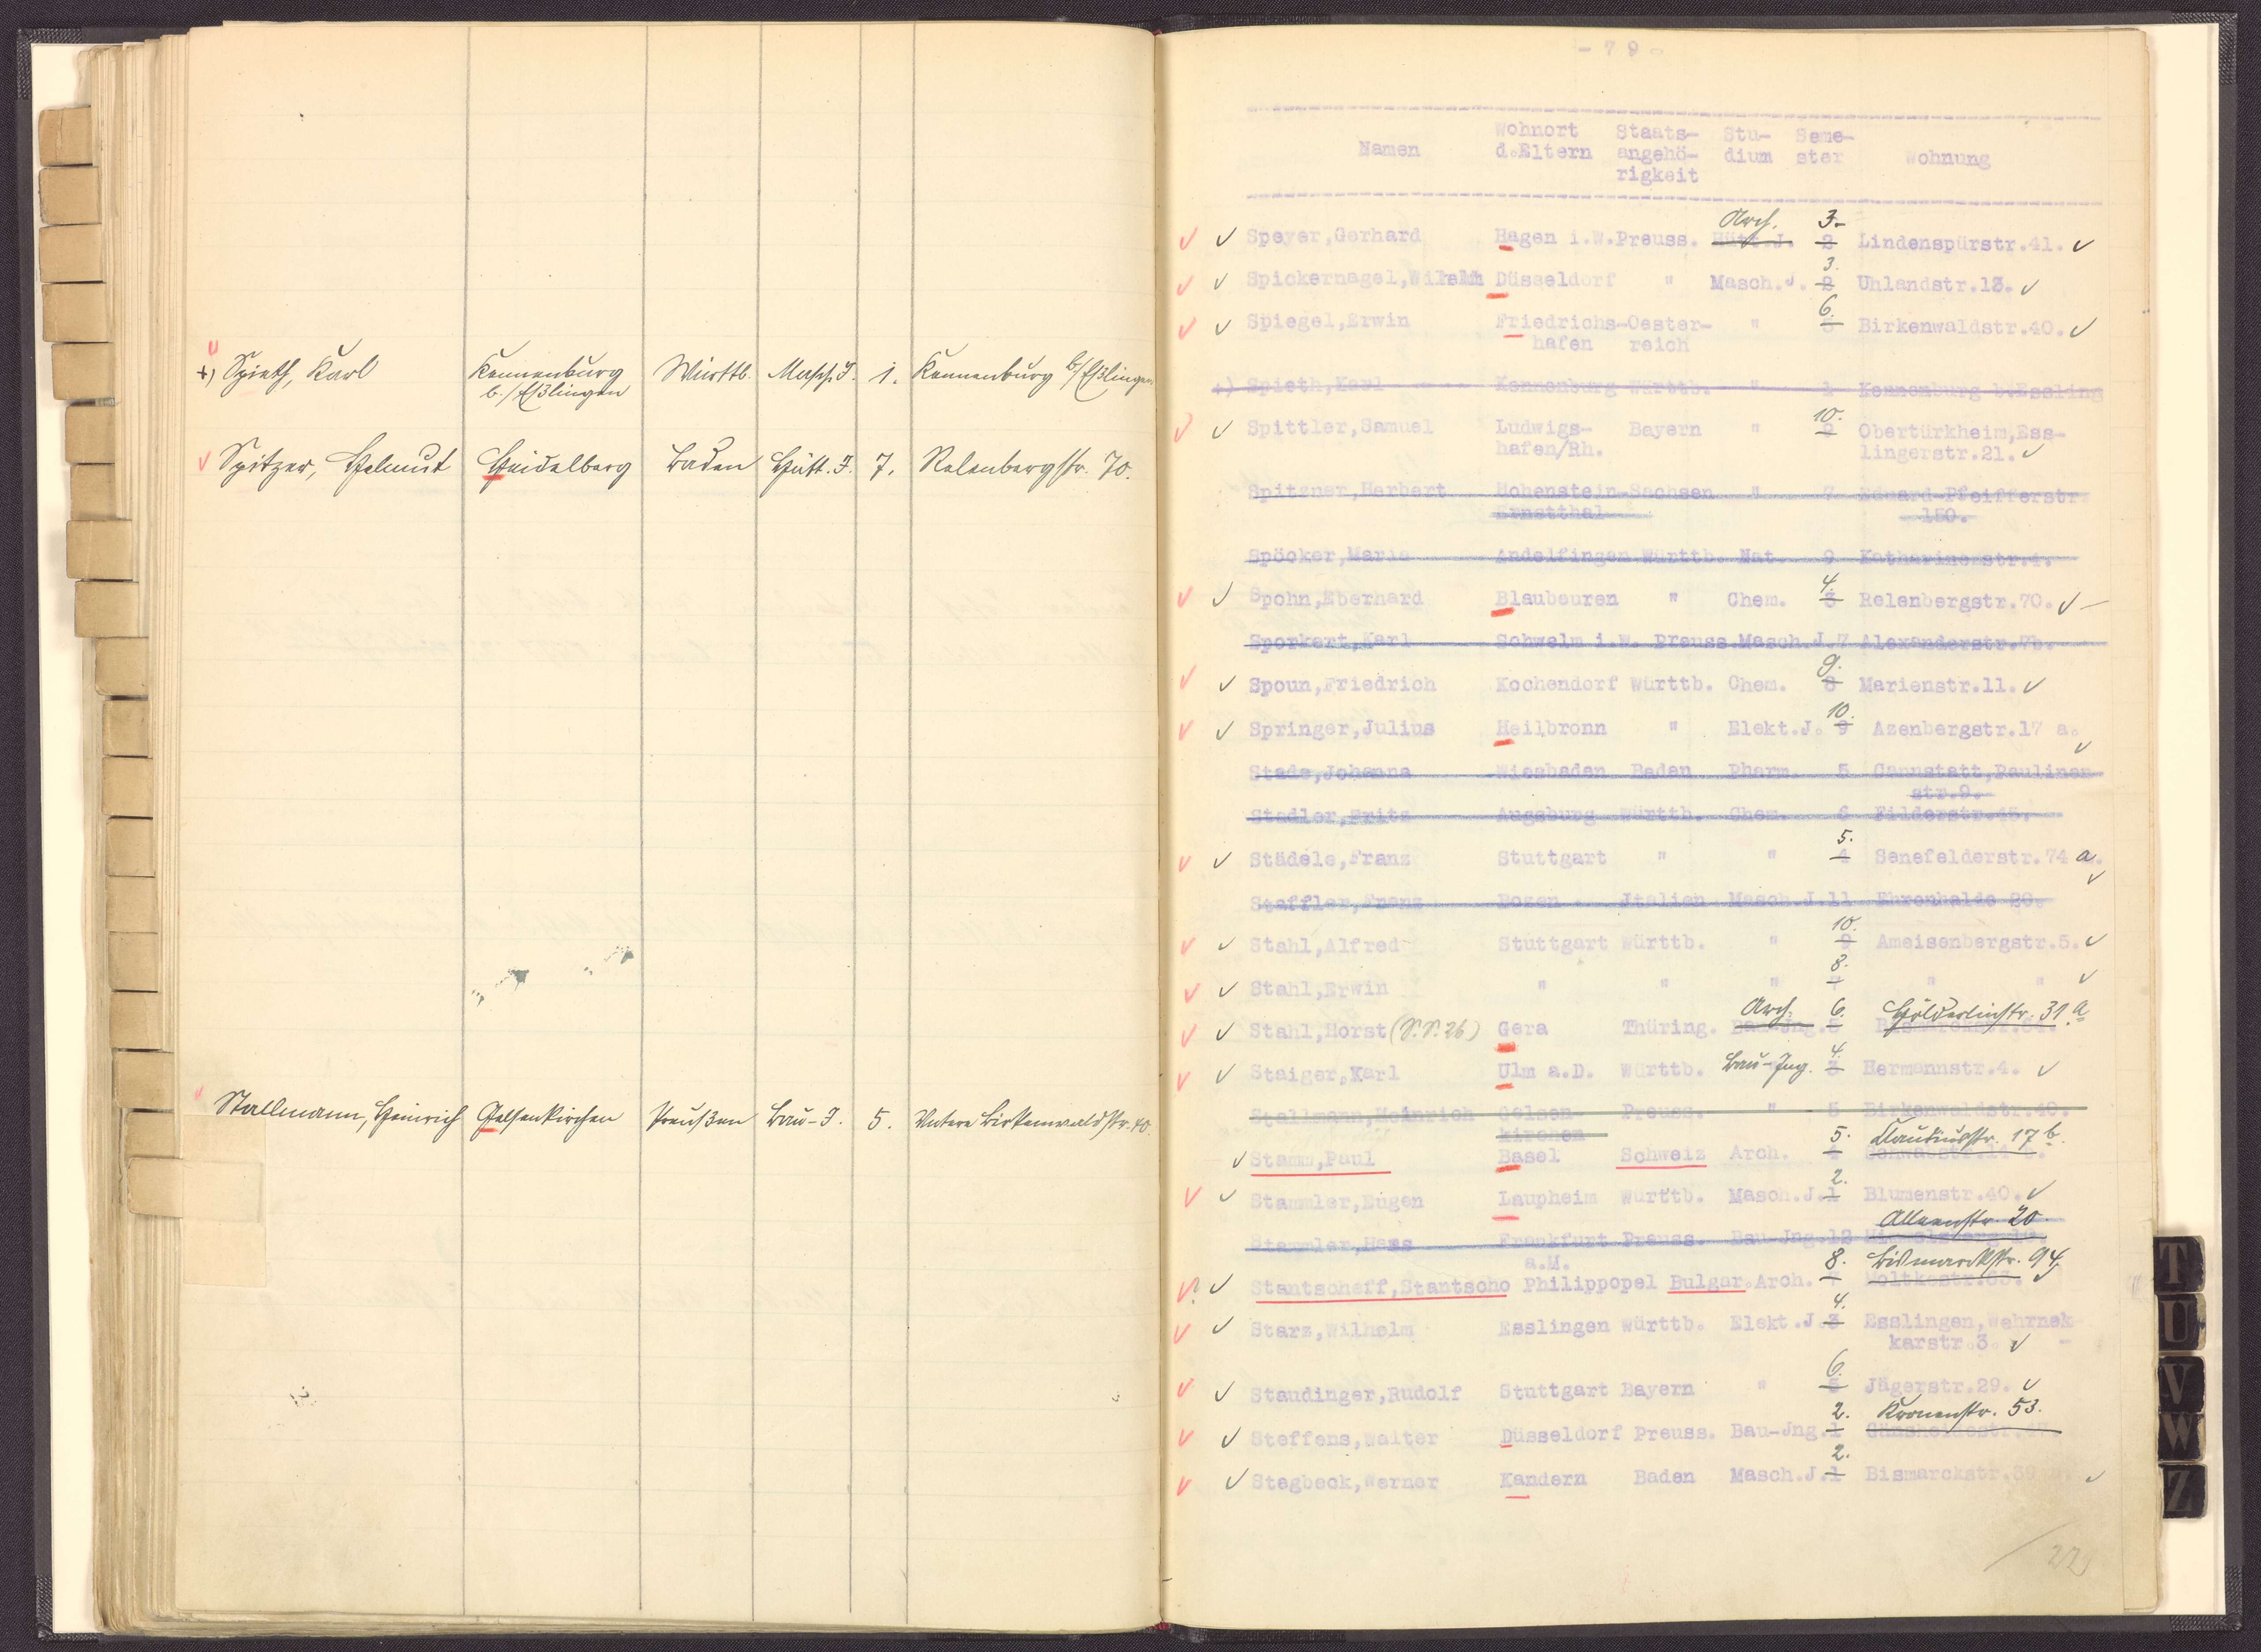 +) Spieth, Karl Kennenburg Württb. Masch. I. 1. Kennenburg b/Eßlingen
b./Eßlingen
Spitzer, Helmut Heidelberg Baden Hütt. I. 7. Relenbergstr. 70.
Stallmann, Heinrich Gelsenkirchen Preußen Bau-I. 5. Untere Birkenwaldstr. 40.
- 7 9 -
Wohnort Staats- Stu- Seme-
Namen d.Eltern angehö- dium ster Wohnung
rigkeit
Arch. 3.
Speyer,Gerhard Hagen i.W.Preuss. Hütt.J. 2 Lindenspürstr.41.
3.
Spickernagel,Wilhelm Düsseldorf " Masch.J. 2 Uhlandstr.13.
6.
Spiegel,Erwin Friedrichs-Oester- " 5 Birkenwaldstr.40.
hafen reich
+) Spieth,Karl Kennenburg Württb. " 1 Kennenburg b.Essling
10.
Spittler,Samuel Ludwigs- Bayern " 9 Obertürkheim,Ess-
hafen/Rh. lingerstr.21.
Spitzner,Herbert Hohenstein-Sachsen " 7 Eduard-Pfeifferstr.
Ernstthal 150.
Spöcker,Maria Andelfingen Württb. Nat. 9 Katharinenstr.4.
4.
Spohn,Eberhard Blaubeuren " Chem. 3 Relenbergstr.70.
Sporkert,Karl Schwelm i.W. Preuss.Masch.J.7 Alexanderstr.
9.
Spoun,Friedrich Kochendorf Württb. Chem. 8 Marienstr.11.
10.
Springer,Julius Heilbronn " Elekt.J. 9 Azenbergstr.17 a.
Stade,Johanna Wiesbaden Baden Pharm. 5 Cannstatt,Paulinen
str.9.
Stadler,Fritz Augsburg Württb. Chem. 6 Filderstr.45.
5.
Städele,Franz Stuttgart " " 4 Senefelderstr.74 a.
Staffler,Franz Bozen Jtalien Masch.J.11 Ehrenhalde 20.
10.
Stahl,Alfred Stuttgart Württb. " 9 Ameisenbergstr.5.
8.
Stahl,Erwin " " " 7 " "
Arch. 6. Hölderlinstr. 31 a
Stahl,Horst (S.S. 26) Gera Thüring. Bau-Jng.5
4.
Staiger,Karl Ulm a.D. Württb. Bau-Ing. 3 Hermannstr.4.
Stallmann,Heinrich Gelsen- Preuss. " 5 Birkenwaldstr.40.
kirchen
5. Claudiusstr. 17 b.
Stamm,Paul Basel Schweiz Arch. 4 Schwabstr.
2.
Stammler,Eugen Laupheim Württb. Masch.J.1 Blumenstr.40.
Alleenstr. 20
Stammler,Hans Frankfurt Preuss. Bau-Jng.12
a.M.
8. Bismarckstr. 94
Stantscheff,Stantscho Philippopel Bulgar.Arch. 7 Moltkestr.63.
4.
Starz,Wilhelm Esslingen Württb. Elekt.J.3 Esslingen,Wehrnek
karstr.3.
6.
Staudinger,Rudolf Stuttgart Bayern " 5 Jägerstr.29.
2. Kronenstr. 53.
Steffens,Walter Düsseldorf Preuss. Bau-Jng.1 Gänsheidestr.
2.
Stegbeck,Werner Kandern Baden Masch.J.1 Bismarckstr.
229
T
U
V
W
Z